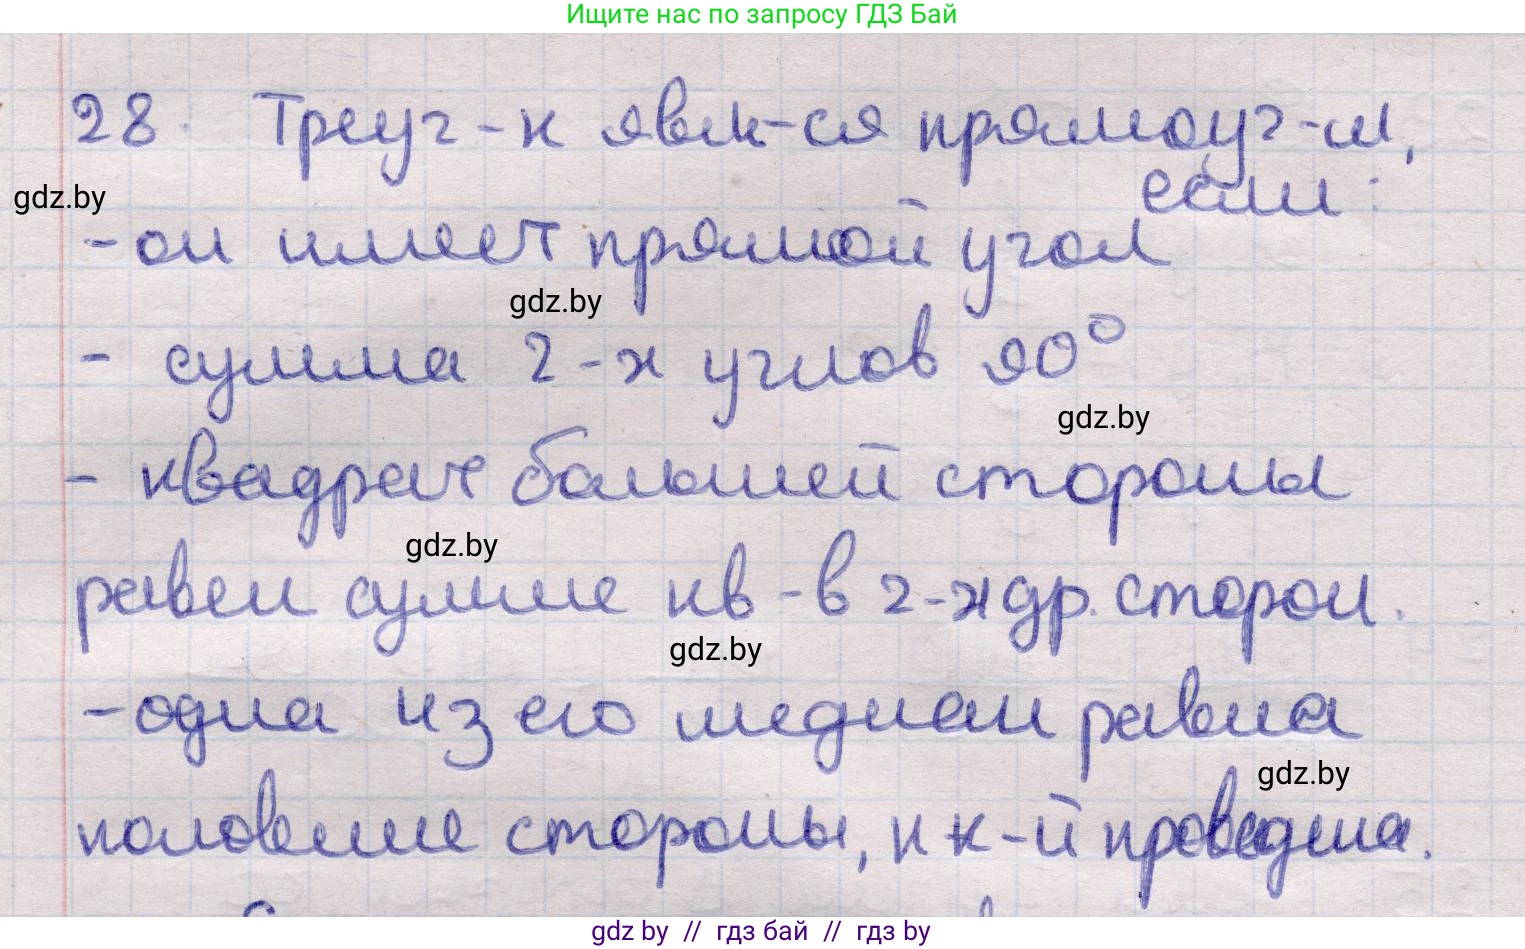 Ищите нас по запросу ГДЗ Бай
28. Треуг-к явл-ся прямоуг-м,
если:
gdz.by
- он имеет прямой угол
gdz.by
- сумма 2-х углов 90°
gdz.by
- квадрат большей стороны
gdz.by
равен сумме кв-в 2-х др. сторон.
gdz.by
- одна из его медиан равна
gdz.by
половине стороны, к к-й проведена.
gdz.by // гдз бай // гдз by